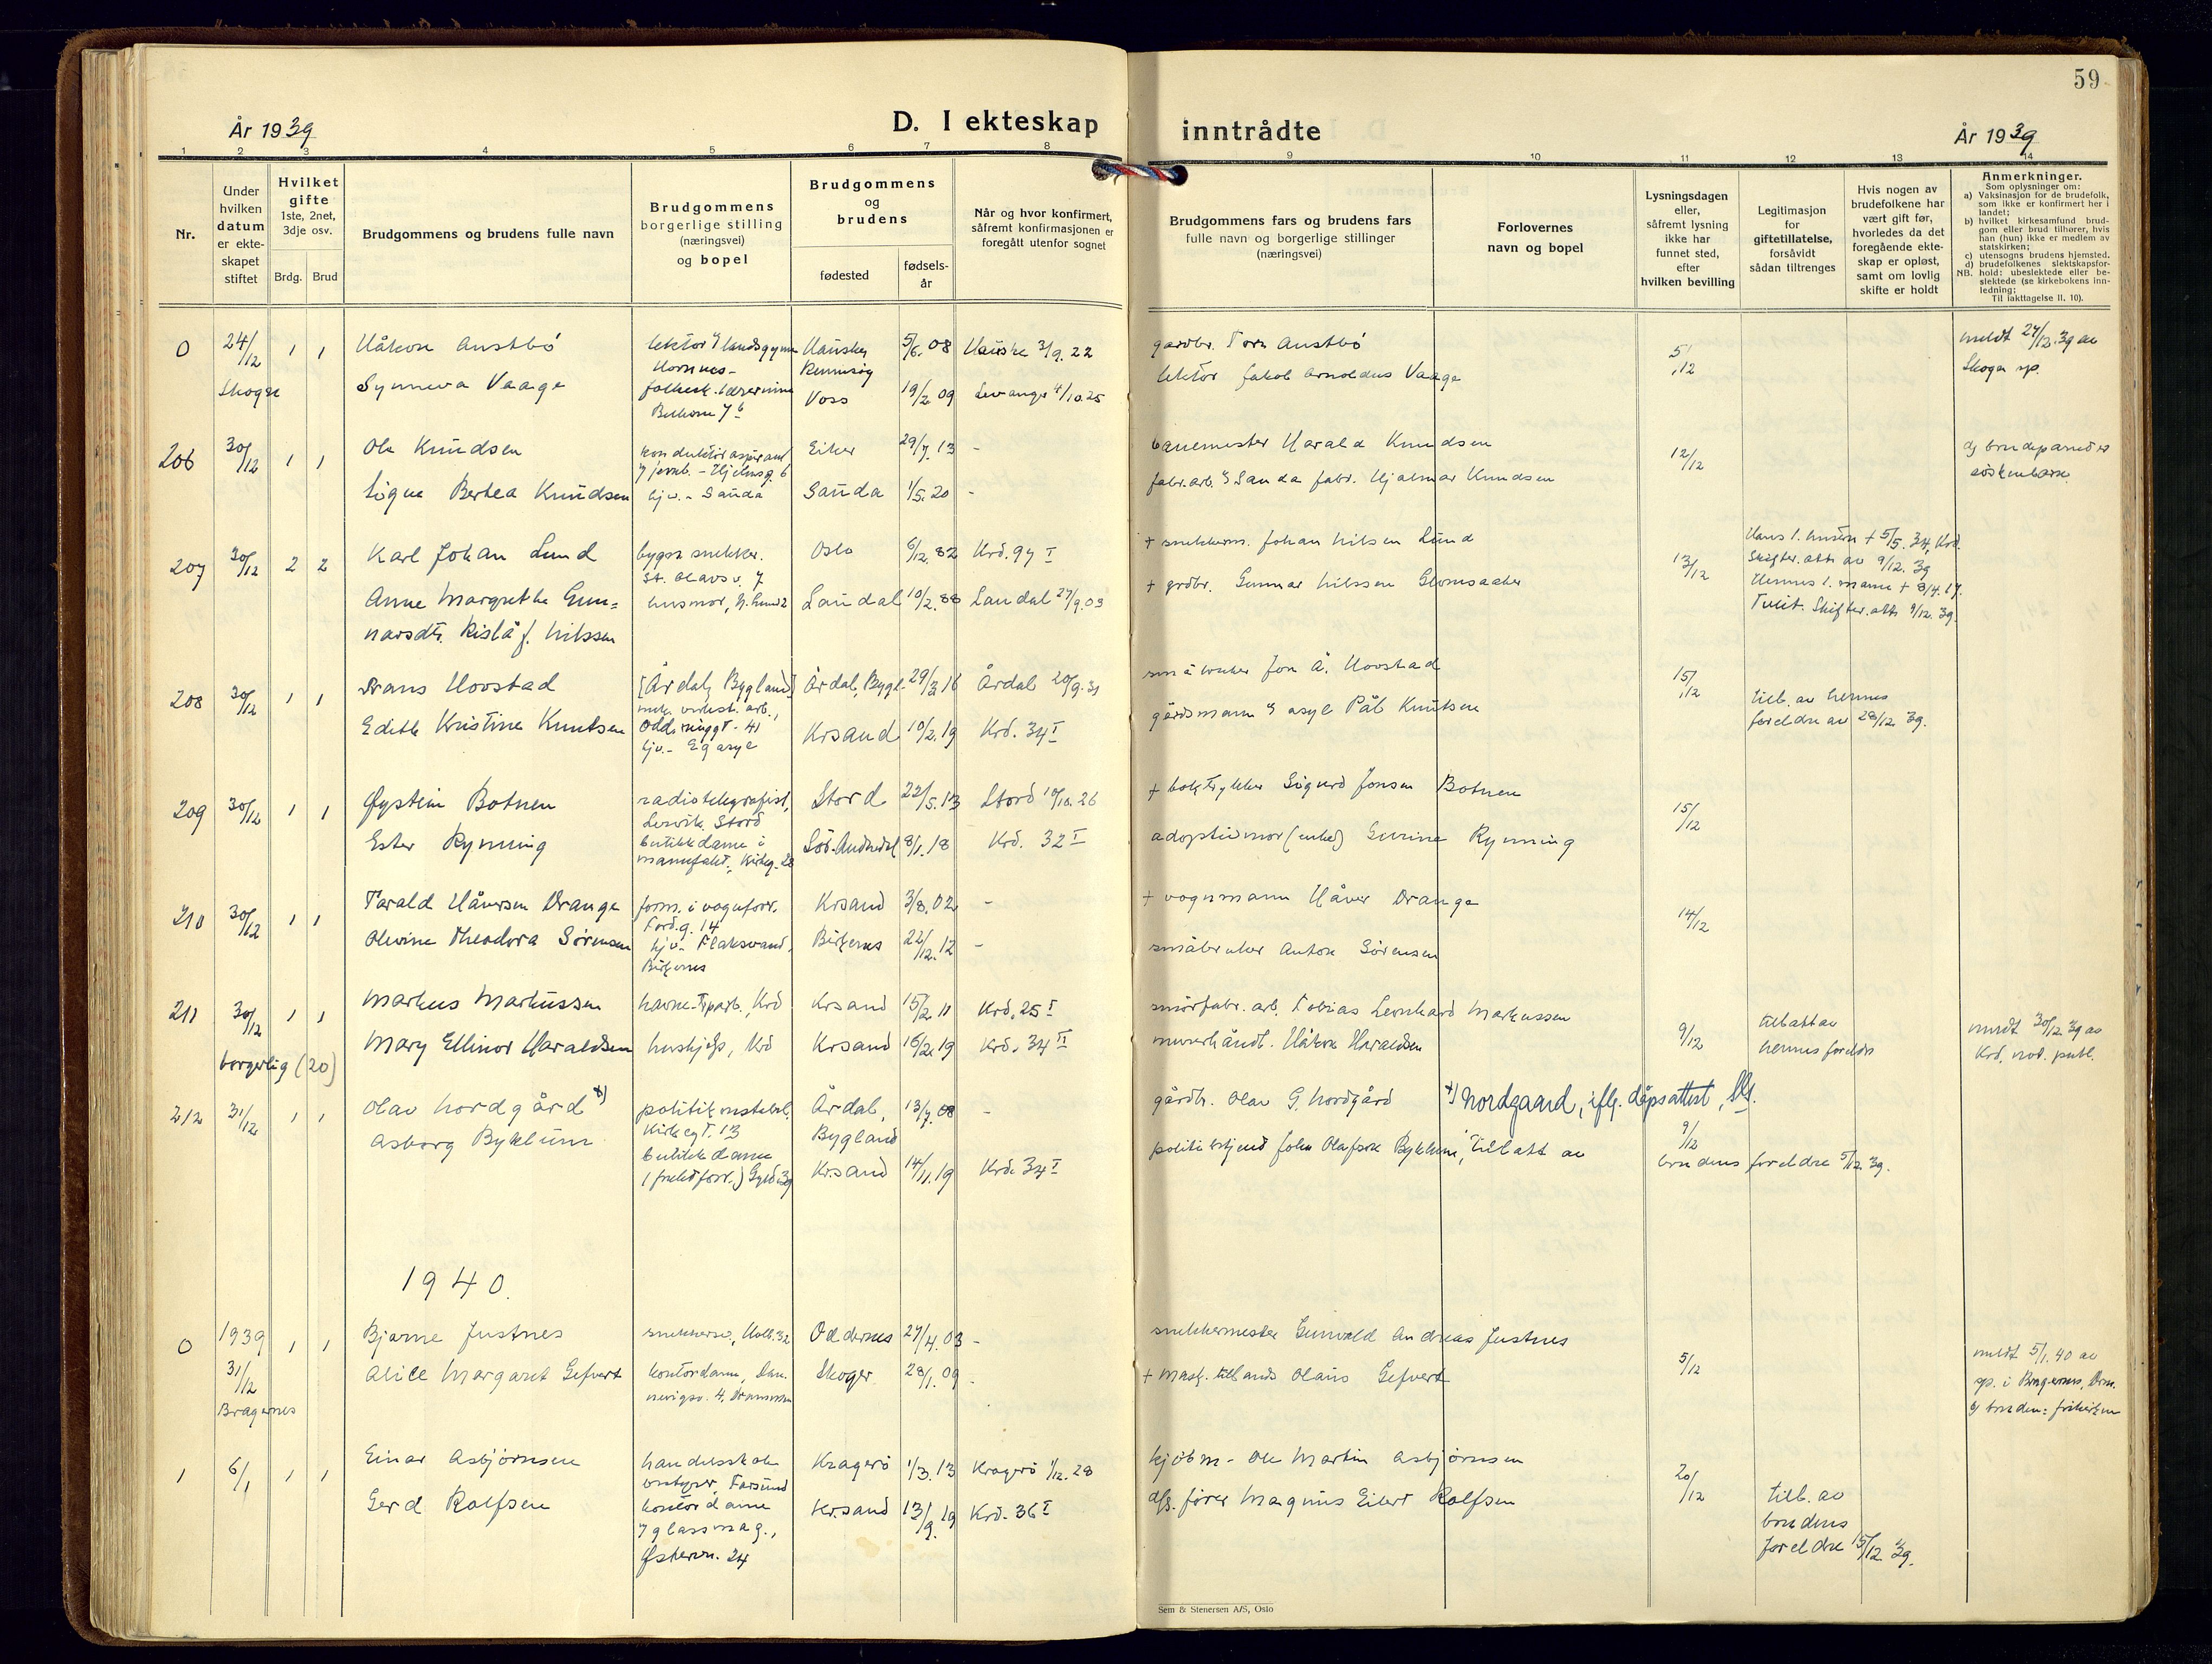 59
År 1939
D. I ekteskap
inntrådte
År 1939
1 2 3 4 5 6 7 8 9 10 11 12 13 14
Nr.
Under
hvilken
datum
er ekte-
skapet
stiftet
Hvilket
gifte
1ste, 2net,
3dje osv.
Brdg. Brud
Brudgommens og brudens fulle navn
Brudgommens
borgerlige stilling
(næringsvei)
og bopel
Brudgommens
og
brudens
fødested
fødsels-
år
Når og hvor konfirmert,
såfremt konfirmasjonen er
foregått utenfor sognet
Brudgommens fars og brudens fars
fulle navn og borgerlige stillinger
(næringsvei)
Forlovernes
navn og bopel
Lysningsdagen
eller,
såfremt lysning
ikke har
funnet sted,
efter
hvilken bevilling
Legitimasjon
for
giftetillatelse,
forsåvidt
sådan tiltrenges
Hvis nogen av
brudefolkene har
vært gift før,
hvorledes da det
foregående ekte-
skap er opløst,
samt om lovlig
skifte er holdt
Anmerkninger.
Som oplysninger om:
a) Vaksinasjon for de brudefolk,
som ikke er konfirmert her i
landet;
b) hvilket kirkesamfund brud-
gom eller brud tilhører, hvis
han (hun) ikke er medlem av
statskirken;
c) utensogns brudens hjemsted.
d) brudefolkenes slektskapsfor-
NB. hold: ubeslektede eller be-
slektede (se kirkebokens inn-
ledning;
Til iakttagelse II. 10).
0 24/12 1 1 Håkon Austbø lektor v/ landsgymn. Hauske, 5/6. 08 Hauske 3/9. 22 gardbr. Tore Austbø 5/12 meldt 27/12. 39 av
Hornnes - Rennesøy
Skoger Synneva Vaage folkesk. lærerinne Voss 19/2. 09 Levanger 4/10. 25 lektor Jakob Arnoldus Vaage Skoger sp.
206 30/12 1 1 Ole Knudsen konduktøraspirant Eiker 29/7. 13 - banemester Harald Knudsen 12/12 d) brudeparet er
v/ jernb. - Hjelmsg. 6 søskenbarn
Signe Bertea Knudsen hjv. - Sauda Sauda 1/5. 20 - fabr.arb. v/ Sauda fabr. Hjalmar Knudsen
207 30/12 2 2 Karl Johan Lund bygn. snekker. Oslo 6/12. 82 Krd. 97 I + snekkerm. Johan Nilsen Lund 13/12 Hans 1. hustru + 5/5. 34, Krd.
St. Olavs v. 7 Skifter. att. av 9/12. 39
Anne Margrethe Gun= husmor, Landal 10/2. 88 Laudal 27/9. 03 + grdbr. Gunnar Nilssen Glomsaaker Hennes 1. mann + 8/4. 17.
narsdtr. Rislå f. Nilssen Skifter. att. 9/12. 39.
208 30/12 1 1 Frans Hovstad [Årdal, Bygland] Årdal, Bygl. 29/3. 16 Årdal 20/9. 31 småbruker Jon Å. Hovstad 15/12
mek. verkst. arb., till. av hennes
Edith Kristine Knutsen Odderninggt. 41 Krsand 10/2. 19 Krd. 34 I gårdsmann v/ asyl Pål Knutsen foreldre av 28/12 39.
hjv. - Eg asyl
209 30/12 1 1 Øystein Botnen radiotelegrafist, Stord 22/5. 13 Stord 10/10. 26 + boktrykker Sigurd Jonsen Botnen 15/12
Lervik, Stord
Ester Rynning butikkdame i Sør-Audnedal 8/1. 18 Krd. 32 I adoptivmor (enke) Gurine Rynning
manufakt., Kirkeg. 28
210 30/12 1 1 Tarald Håversen Drange form. i vognforr. Krsand 3/8. 02 - + vognmann Håver Drange 14/12
Tord. g. 14
Olevine Theodora Sørensen hjv. - Flaksvand, Birkenes 22/12. 12 - småbruker Anton Sørensen
Birkenes
211 30/12 1 1 Markus Markussen havne-trp.arb., Krd Krsand 15/2. 11 Krd. 25 I smørfabr. arb. Tobias Leonhard Markussen 9/12 till. att. av meldt 30/12. 39 av
Mary Ellinor Haraldsen hushj., Krd Krsand 16/2. 19 Krd. 34 II murerhåndl. Håkon Haraldsen hennes foreldre Krd. not. publ.
borgerlig (20)
212 31/12 1 1 Olav Nordgård x) politikonstabel. Årdal, 13/7. 08 - gårdbr. Olav G. Nordgård x) Nordgaard, iflg. dåpsattest,
Kirkegt. 13 Bygland 9/12
Asborg Byklum butikkdame Krsand 14/11. 19 Krd. 34 I politibetjent John Olafsen Byklum, till. att av
(fruktforr.) brudens foreldre 5/12. 39.
1940.
0 1939 1 1 Bjarne Justnes snekkersv., Holb. 32 Oddernes 27/4. 03 - snekkermester Gunvald Andreas Justnes 5/12 meldt 5/1. 40 av
31/12 Alice Margaret Gefvert kontordame, Dan- Skoger 28/1. 09 - + mask. Olaus Gefvert sp. i Bragernes, Drm.
Bragernes nevigsv. 4, Drammen b) bruden: frikirken
1 6/1 1 1 Einar Asbjørnsen handelsskole Kragerø 1/3. 13 Kragerø 1/12. 28 kjøbm - Ole Martin Asbjørnsen 20/12
bestyrer, Farsund
Gerd Rolfsen kontordame Kr.sand 13/9. 19 Krd. 36 I fører Magnus Eilert Rolfsen till. av
v/ glassmag., brudens
Østervn. 24 foreldre 15/12 39.
Sem & Stenersen A/S, Oslo